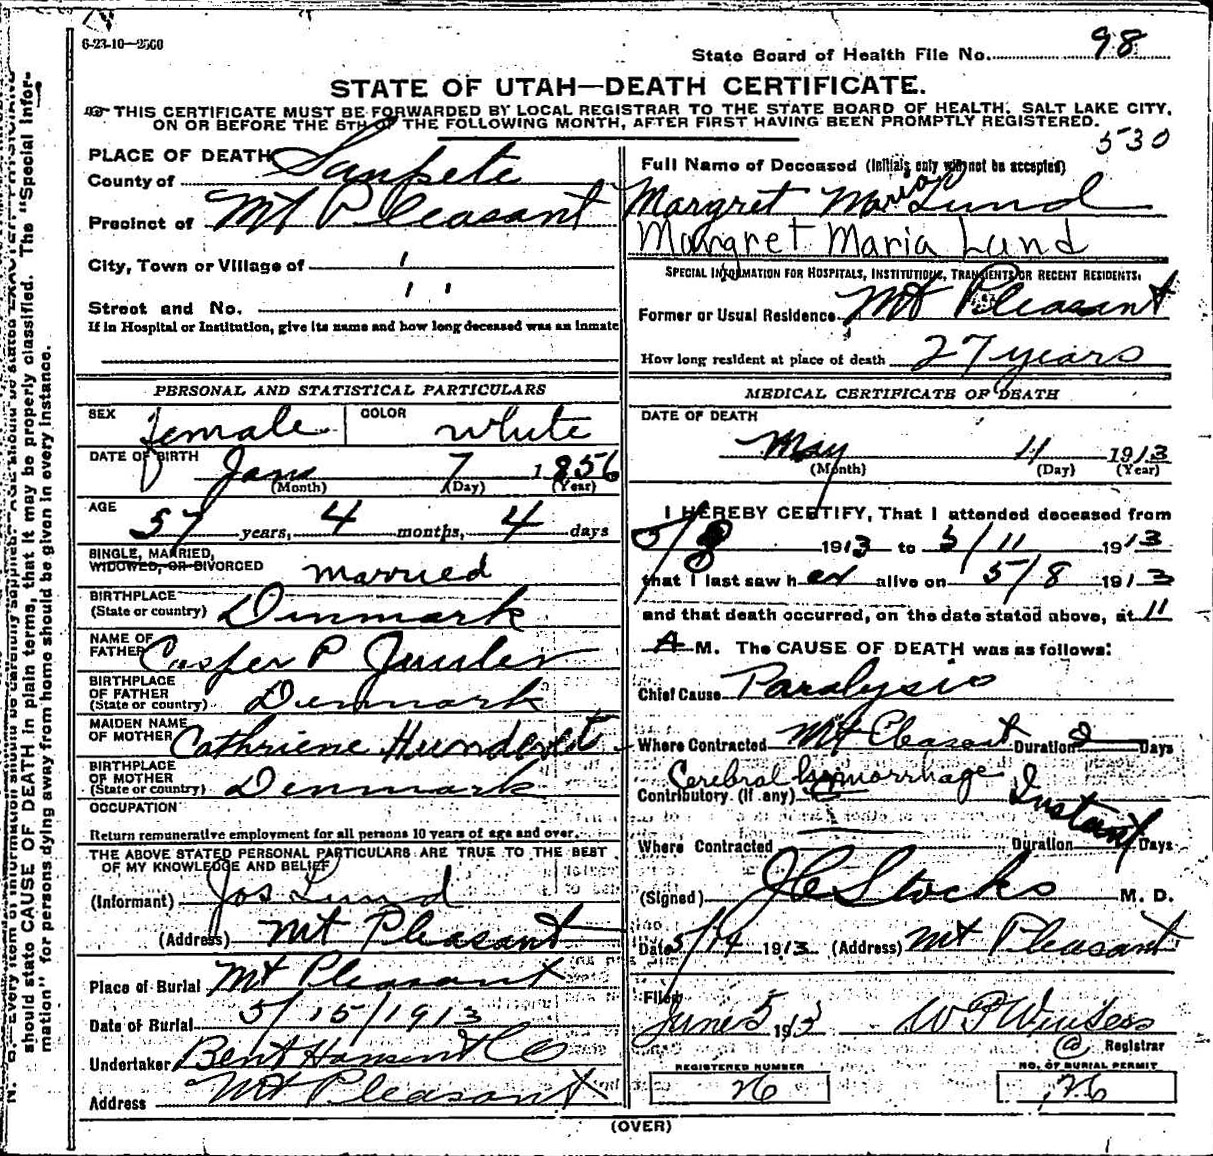 6-23-10—2500
State Board of Health File No. 98
STATE OF UTAH—DEATH CERTIFICATE.
THIS CERTIFICATE MUST BE FORWARDED BY LOCAL REGISTRAR TO THE STATE BOARD OF HEALTH, SALT LAKE CITY,
ON OR BEFORE THE 5TH OF THE FOLLOWING MONTH, AFTER FIRST HAVING BEEN PROMPTLY REGISTERED.
530
PLACE OF DEATH
County of Sanpete
Precinct of Mt Pleasant
City, Town or Village of
Street and No.
If in Hospital or Institution, give its name and how long deceased was an inmate
PERSONAL AND STATISTICAL PARTICULARS
SEX female COLOR white
DATE OF BIRTH Jany 7 1856
(Month) (Day) (Year)
AGE 57 years, 4 months, 4 days
SINGLE, MARRIED,
WIDOWED, OR DIVORCED married
BIRTHPLACE
(State or country) Dinmark
NAME OF
FATHER Casper P
BIRTHPLACE
OF FATHER
(State or country) Denmark
MAIDEN NAME
OF MOTHER Cathriene
BIRTHPLACE
OF MOTHER
(State or country) Denmark
OCCUPATION
Return remunerative employment for all persons 10 years of age and over.
THE ABOVE STATED PERSONAL PARTICULARS ARE TRUE TO THE BEST
OF MY KNOWLEDGE AND BELIEF
(Informant) Jos Lund
(Address) Mt Pleasant
Place of Burial Mt Pleasant
Date of Burial 5/15/1913
Undertaker Bent Hansen & Co
Address Mt Pleasant
Full Name of Deceased (Initials only will not be accepted)
Margret Marian Lund
Margret Maria Lund
SPECIAL INFORMATION FOR HOSPITALS, INSTITUTIONS, TRANSIENTS OR RECENT RESIDENTS.
Former or Usual Residence Mt Pleasant
How long resident at place of death 27 years
MEDICAL CERTIFICATE OF DEATH
DATE OF DEATH
May 11 1913
(Month) (Day) (Year)
I HEREBY CERTIFY, That I attended deceased from
5/8 1913 to 5/11 1913
that I last saw her alive on 5/8 1913
and that death occurred, on the date stated above, at 11
A M. The CAUSE OF DEATH was as follows:
Chief Cause Paralysis
Where Contracted Mt Pleasant Duration 2 Days
Cerebral hemorrhage
Contributory (if any) Instant
Where Contracted Duration Days
(Signed) J C Stocks M. D.
Date 5/14 1913 (Address) Mt Pleasant
Filed
June 5 1913 W P Winters
Registrar
REGISTERED NUMBER
26
NO. OF BURIAL PERMIT
26
(OVER)
should state CAUSE OF DEATH in plain terms, that it may be properly classified. The "Special Infor-
mation" for persons dying away from home should be given in every instance.